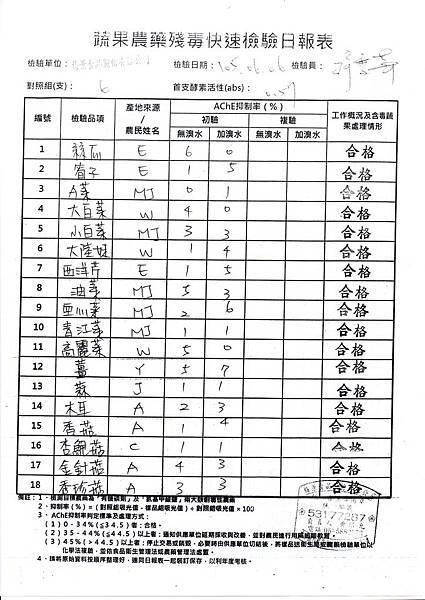 蔬果農藥殘毒快速檢驗日報表
檢驗單位： 檢驗日期：105.06.06 檢驗員：
對照組(支)：6 首支酵素活性(abs)：
編號 檢驗品項 產地來源/農民姓名 AChE抑制率(%) 工作概況及含毒蔬果處理情形
初驗 複驗
無溴水 加溴水 無溴水 加溴水
1 絲瓜 E 6 0 合格
2 筍子 E 1 5 合格
3 A菜 MJ 0 1 合格
4 大白菜 W 4 0 合格
5 小白菜 MJ 3 3 合格
6 大陸妹 W 1 4 合格
7 西洋芹 E 1 5 合格
8 油菜 MJ 5 3 合格
9 空心菜 MJ 2 6 合格
10 青江菜 MJ 1 1 合格
11 高麗菜 W 5 0 合格
12 薑 Y 5 7 合格
13 蒜 J 1 1 合格
14 木耳 A 2 3 合格
15 香菇 A 1 4 合格
16 杏鮑菇 C 1 1 合格
17 金針菇 A 4 3 合格
18 秀珍菇 A 3 3 合格
備註：1．檢測目標農藥為"有機磷劑"及"氨基甲酸鹽"兩大類劇毒性農藥
2．抑制率(%)=(對照組吸光值-樣品組吸光值)÷對照組吸光值×100
3．AChE抑制率判定標準及處理方式：
(1)0-34%(≦34.5)者：合格。
(2)35-44%(≦44.5)以上者：通知供應單位延期採收與改善，並對農民進行用藥追蹤教育。
(3)45%(>44.5)以上者：停止交易或銷毀，必要時由供應單位切結後，將樣品送衛生局或藥檢驗單位以
化學法複驗，並依食品衛生管理法或農藥管理法處置。
4．請將原始資料按順序整理好，連同日報表一起裝訂保存，以利年度考核。
53177287